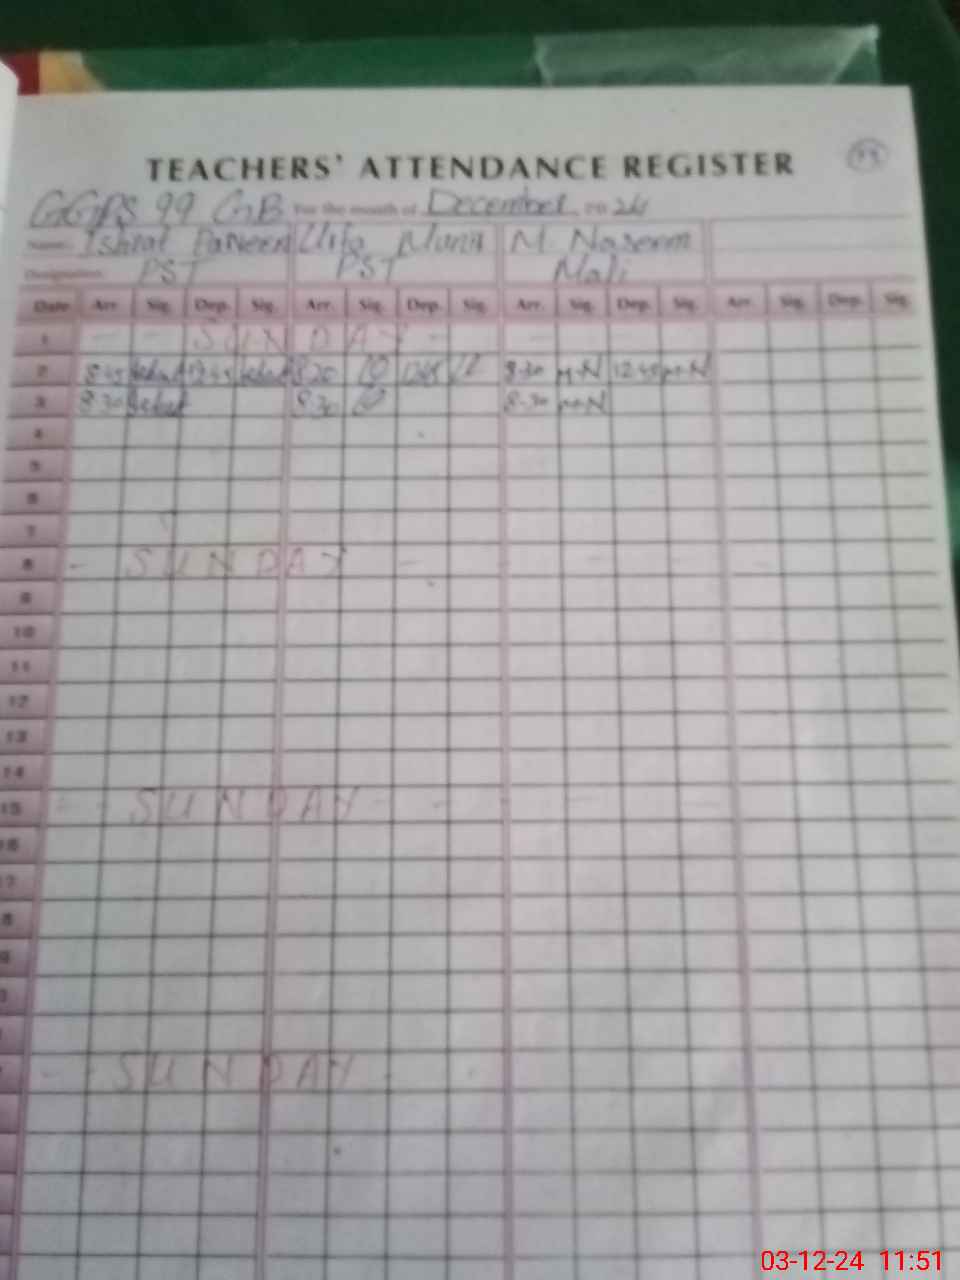 TEACHERS' ATTENDANCE REGISTER
GGPS 99 GB For the month of December 2024
Name Ishrat Parveen M. Naseem
Designation PST PST Mali
Date Arr. Sig. Dep. Sig. Arr. Sig. Dep. Sig. Arr. Sig. Dep. Sig. Arr. Sig. Dep. Sig.
1 SUNDAY
2 8:45 12:45 8:20 8-30 M-N 12:45 M-N
3 8:30 8:30 8-30 M-N
4
5
6
7
8 SUNDAY
9
10
11
12
13
14
15 SUNDAY
16
SUNDAY
03-12-24 11:51